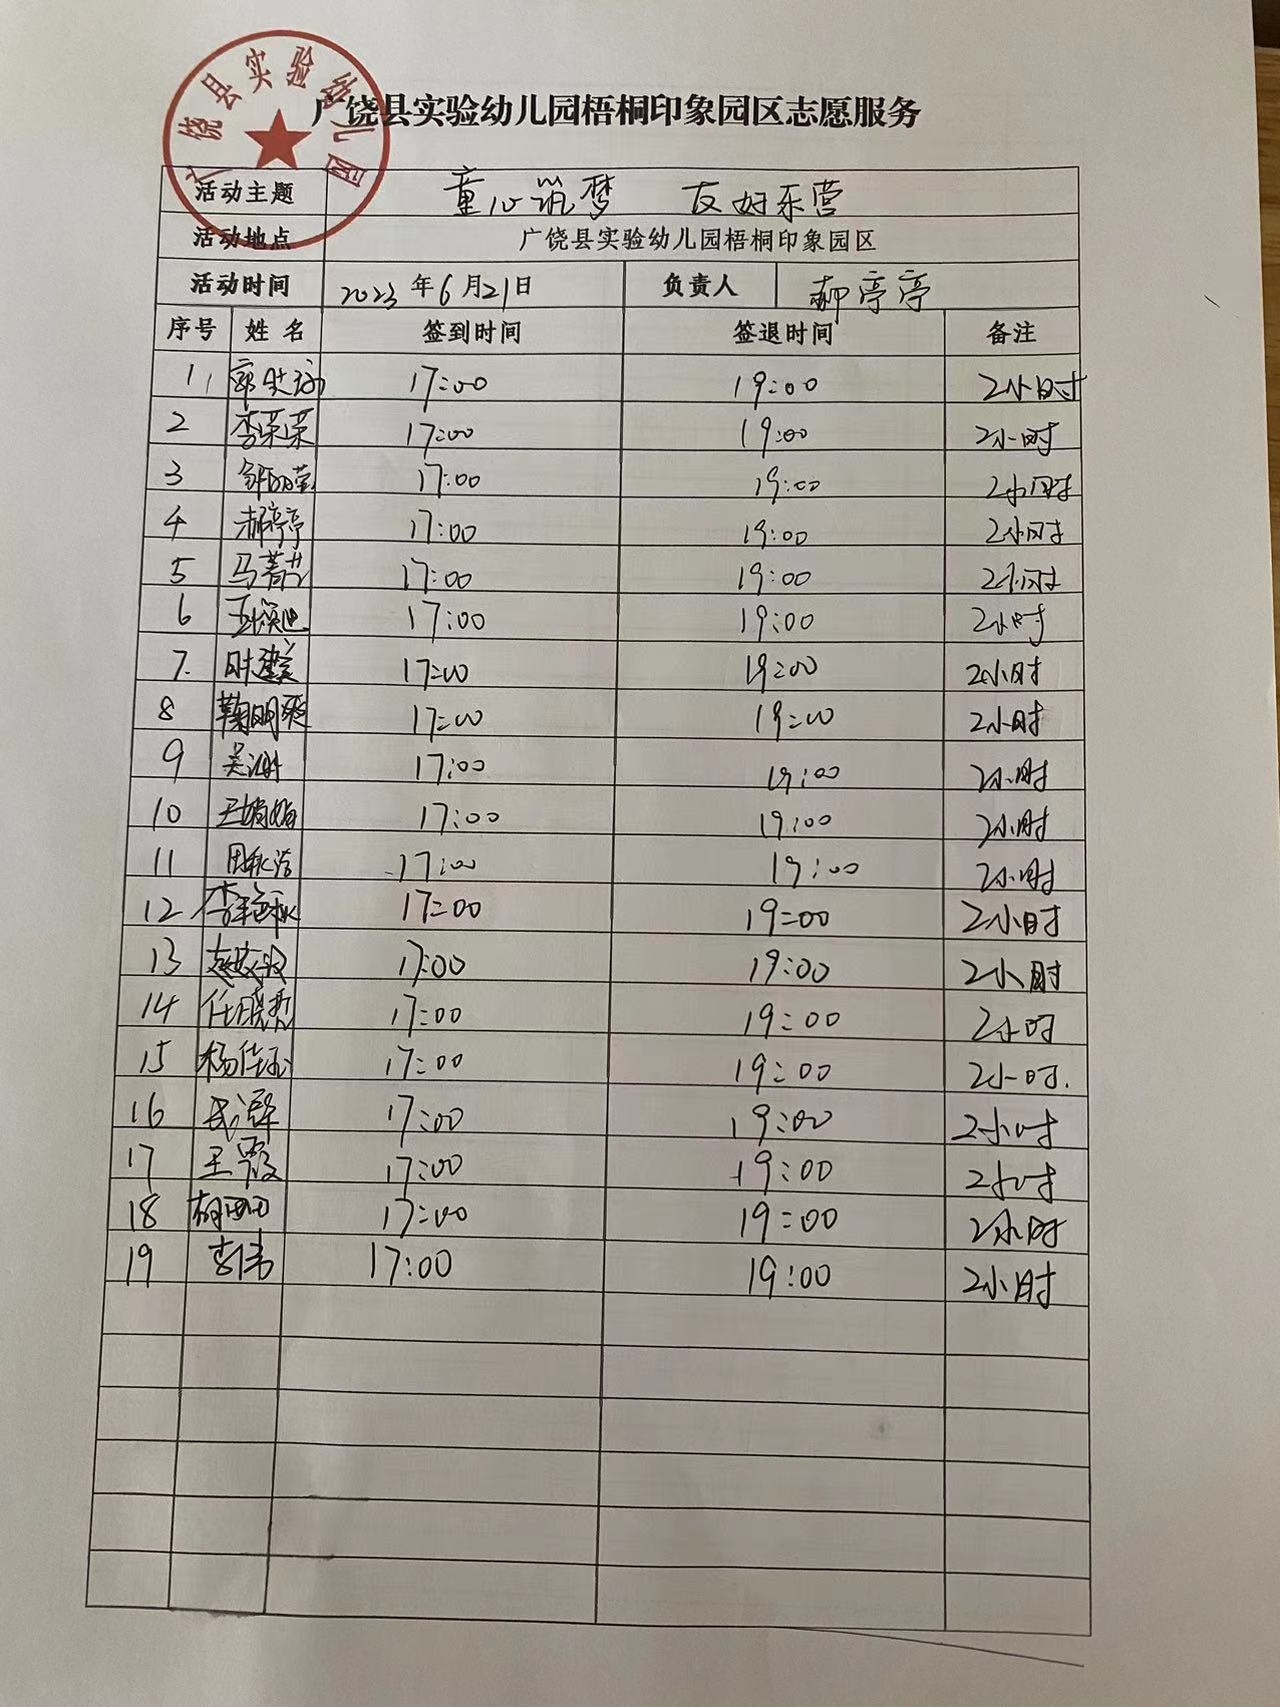 广饶县实验幼儿园
广饶县实验幼儿园梧桐印象园区志愿服务
活动主题 童心筑梦 友好东营
活动地点 广饶县实验幼儿园梧桐印象园区
活动时间 2023年6月21日 负责人 郝亭亭
序号 姓名 签到时间 签退时间 备注
1 17:00 19:00 2小时
2 李荣荣 17:00 19:00 2小时
3 17:00 19:00 2小时
4 郝亭亭 17:00 19:00 2小时
5 17:00 19:00 2小时
6 17:00 19:00 2小时
7. 17:00 19:00 2小时
8 鞠明爽 17:00 19:00 2小时
9 17:00 19:00 2小时
10 王娟娟 17:00 19:00 2小时
11 17:00 19:00 2小时
12 17:00 19:00 2小时
13 17:00 19:00 2小时
14 任晓哲 17:00 19:00 2小时
15 17:00 19:00 2小时.
16 17:00 19:00 2小时
17 王霞 17:00 19:00 2小时
18 17:00 19:00 2小时
19 李伟 17:00 19:00 2小时